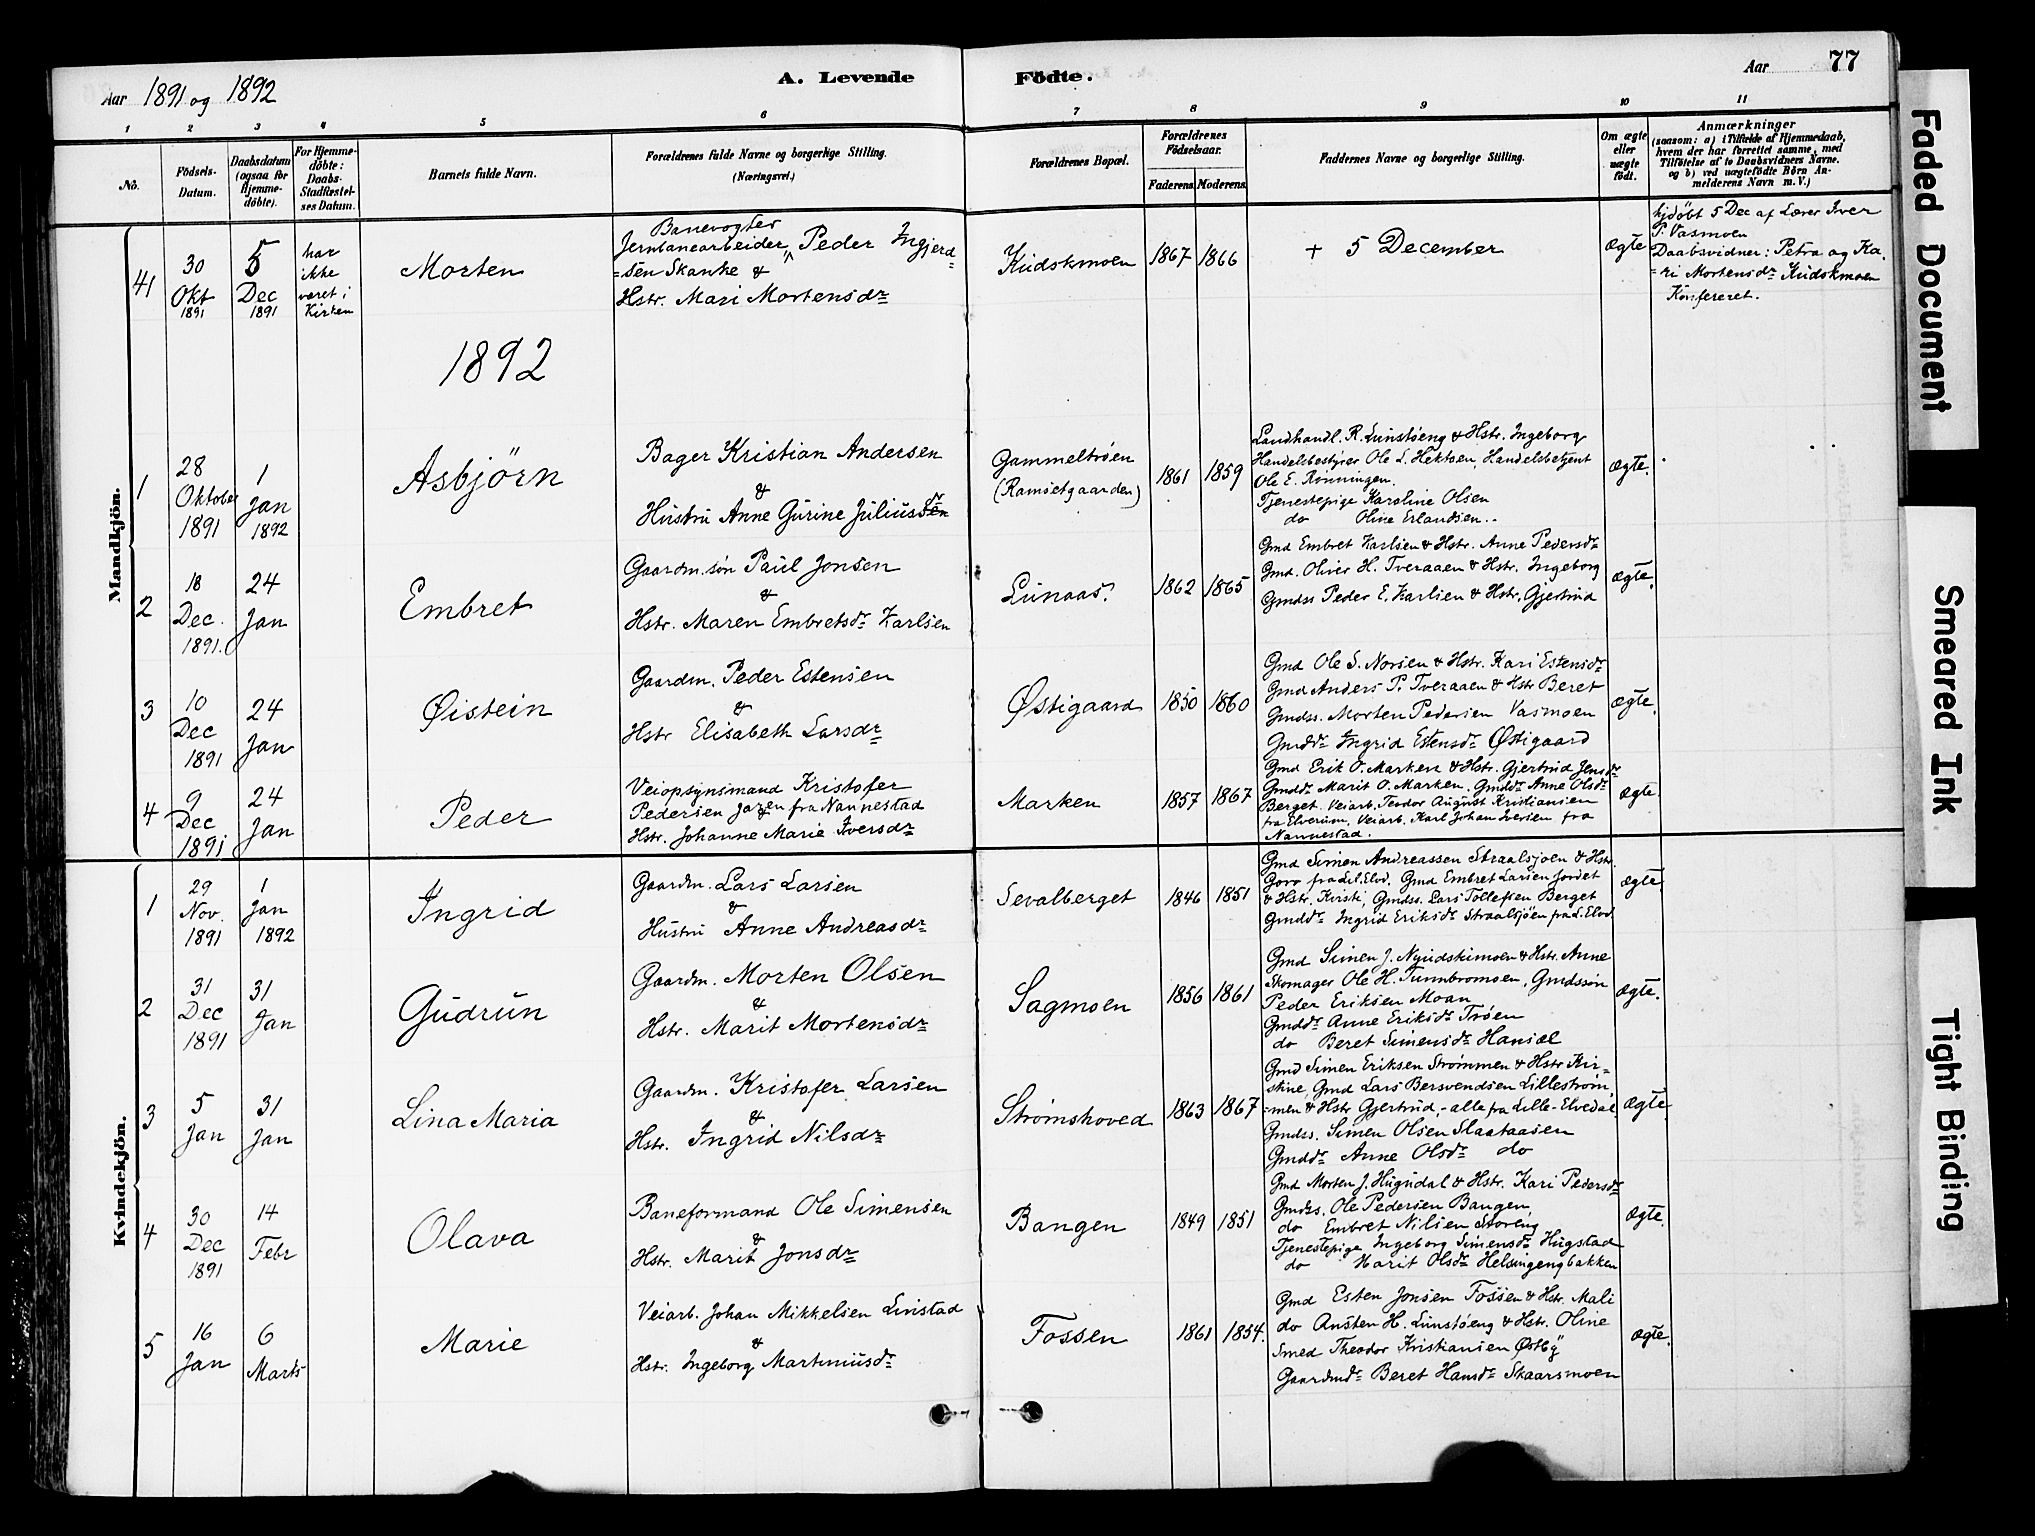 Aar 1891 og 1892
A. Levende Födte.
Aar 77
1 2 3 4 5 6 7 8 9 10 11
No.
Födsels-Datum.
Daabsdatum (ogsaa för Hjemmedöbte).
For Hjemmedöbte: Daabs-Stadfæstelses Datum.
Barnets fulde Navn.
Forældrenes fulde Navne og borgerlige Stilling.
(Næringsvei.)
Forældrenes Bopæl.
Forældrenes Födselsaar.
Faderens Moderens
Faddernes Navne og borgerlige Stilling.
Om ægte eller uægte födt.
Anmærkninger
(saasom: a) i Tilfælde af Hjemmedaab,
hvem der har forrettet samme, med
Tilföielse af to Daabsvidners Navne.
og b) ved uægtefödte Börn An-
melderens Navn m. V.)
Mandkjön.
41
30 Okt 1891
5 Dec 1891
har ikke været i Kirken
Morten
Banevogter
Jernbanearbeider, Peder Ingjerd=
=sen Skanke &
Hstr. Mari Mortensdr
Kudskmoen
1867 1866
+ 5 December
Ægte
hjdøbt 5 Dec af Lærer Iver
P. Vasmoen
Daabsvidner: Petra og Ka-
=ri Mortensdr Kudskmoen
Konfereret.
1892
1
28 Oktober 1891
1 Jan 1892
Asbjörn
Bager Kristian Andersen
&
Hustru Anne Gurine Juliussen dr
Gammeltrøen
(Ramsetgaarden)
1861 1859
Landhandl. R. Lunstøeng & Hstr. Ingeborg
Handelsbestyrer Ole L. Hektoen, Handelsbetjent
Ole E. Rønningen.
Tjenestepige Karoline Olsen
do Oline Erlandsen..
Ægte.
2
18 Dec. 1891.
24 Jan
Embret
Gaardm.søn Paul Jonsen
&
Hstr. Maren Embretsdr Karlsen
Lunaas.
1862 1865
Gmd Embret Karlsen & Hstr. Anne Pedersdr
Gmd. Oliver H. Tveraaen & Hstr. Ingeborg
Gmdss Peder E. Karlsen & Hstr. Gjertrud
Ægte.
3
10 Dec 1891
24 Jan
Øistein
Gaardm. Peder Estensen
&
Hstr Elisabeth Larsdr
Østigaard
1850 1860
Gmd Ole S. Norsen & Hstr. Kari Estensdr
Gmd Anders P. Tveraaen & Hstr Beret
Gmdss. Morten Pedersen Vasmoen
Gmddr Ingrid Estensdr Østigaard
Ægte.
4
9 Dec 1891
24 Jan
Peder
Veiopsynsmand Kristofer
Pedersen fra Nannestad
&
Hstr. Johanne Marie Iversdr
Marken
1857 1867
Gmd Erik O. Marken & Hstr. Gjertrud Jensdr
Gmddr Marit O. Marken. Gmddr Anne Olsdr
Berget. Veiarb. Teodor August Kristiansen
fra Elverum. Veiarb. Karl Johan Iversen fra
Nannestad.
Ægte.
Kvindekjön.
1
29 Nov. 1891
1 Jan 1892
Ingrid
Gaardm. Lars Larsen
&
Hustru Anne Andreasdr
Sevalberget
1846 1851
Gmd Simen Andreassen Straalsjøen & Hstr.
Goro fra Lil. Elvd. Gmd Embret Larsen Jordet
& Hstr. Kirsti, Gmdss. Lars Tollefsen Berget
Gmddr Ingrid Eriksdr Straalsjøen fra L. Elvd
Ægte.
2
31 Dec 1891
31 Jan
Gudrun
Gaardm. Morten Olsen
&
Hstr. Marit Mortensdr
Sagmoen
1856 1861
Gmd Simen J. Nyudskimoen & Hstr. Anne
Skomager Ole H. Tunnbromoen, Gmdssøn
Peder Eriksen Moan
Gmddr Anne Eriksdr Trøen
do Beret Simensdr Hansæl
Ægte.
3
5 Jan
31 Jan
Lina Maria
Gaardm. Kristofer Larsen
&
Hstr. Ingrid Nilsdr
Strømshoved
1863 1867
Gmd Simen Eriksen Strømmen & Hstr Kir=
stine, Gmd Lars Bersvendsen Lillestrøm
=men & Hstr Gjertrud,- alle fra Lille-Elvedal.
Gmdss. Simen Olsen Slaataasen
Gmddr Anne Olsdr do
Ægte.
4
30 Dec 1891
14 Febr
Olava
Baneformand Ole Simensen
&
Hstr. Marit Jonsdr
Bangen
1849 1851
Gmd Morten J. Hugudal & Hstr. Kari Pedersdr
Gmdss. Ole Pedersen Bangen,
do Embret Nilsen Storeng
Tjenestepige Ingeborg Simensdr Hugstad
do Marit Olsdr Helsingengbakken
Ægte.
5
16 Jan
6 Marts
Marie
Veiarb. Johan Mikkelsen Linstad
&
Hstr. Ingeborg Martiniusdr
Fossen
1861 1854.
Gmd Esten Jonsen Fossen & Hstr. Mali
do Austen H. Lunstøeng & Hstr. Oline
Smed Theodor Kristiansen Østby
Gaardmdr Beret Hansdr Skaarsmoen
Ægte.
Faded Document
Smeared Ink
Tight Binding